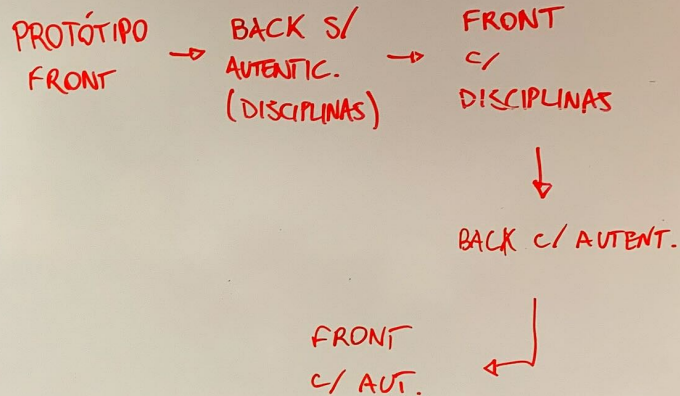 PROTÓTIPO
FRONT
BACK S/
AUTENTIC.
(DISCIPLINAS)
FRONT
C/
DISCIPLINAS
BACK C/ AUTENT.
FRONT
C/ AUT.